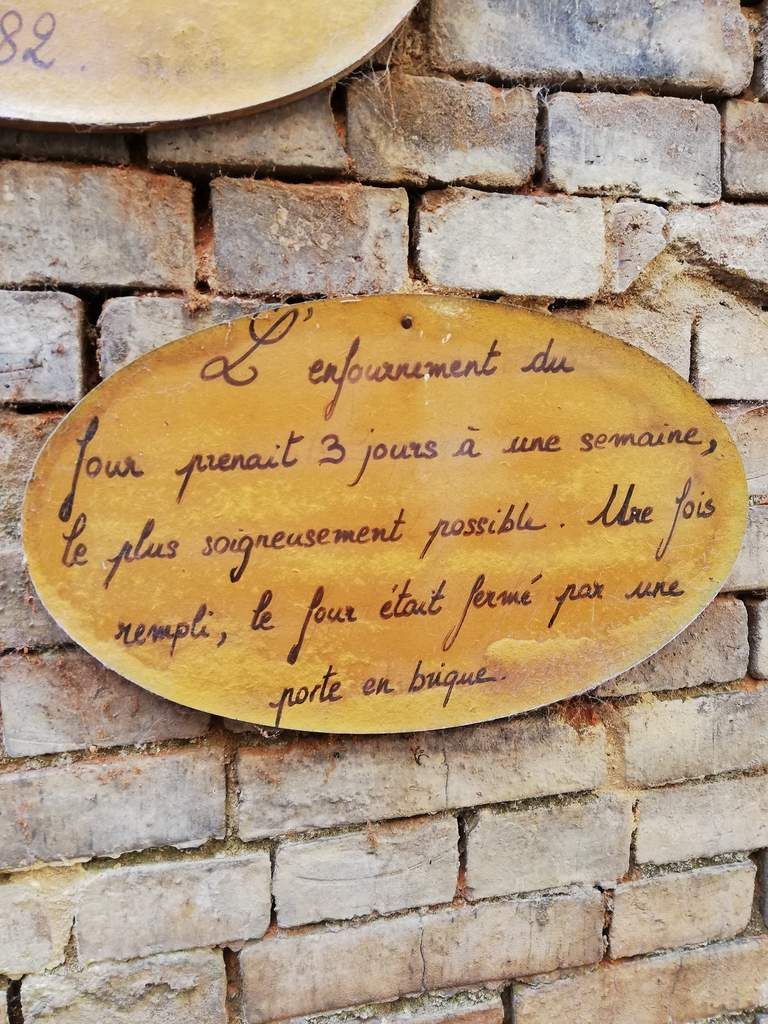 82.
L'enfournement du
four prenait 3 jours à une semaine,
le plus soigneusement possible. Une fois
rempli, le four était fermé par une
porte en brique.